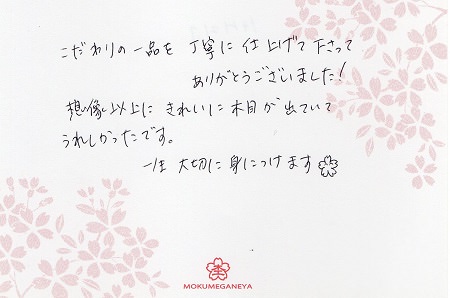 こだわりの一品を 丁寧に仕上げて下さって
ありがとうございました!
想像以上に きれいに木目が出ていて
うれしかったです。
一生 大切に身につけます
MOKUMEGANEYA